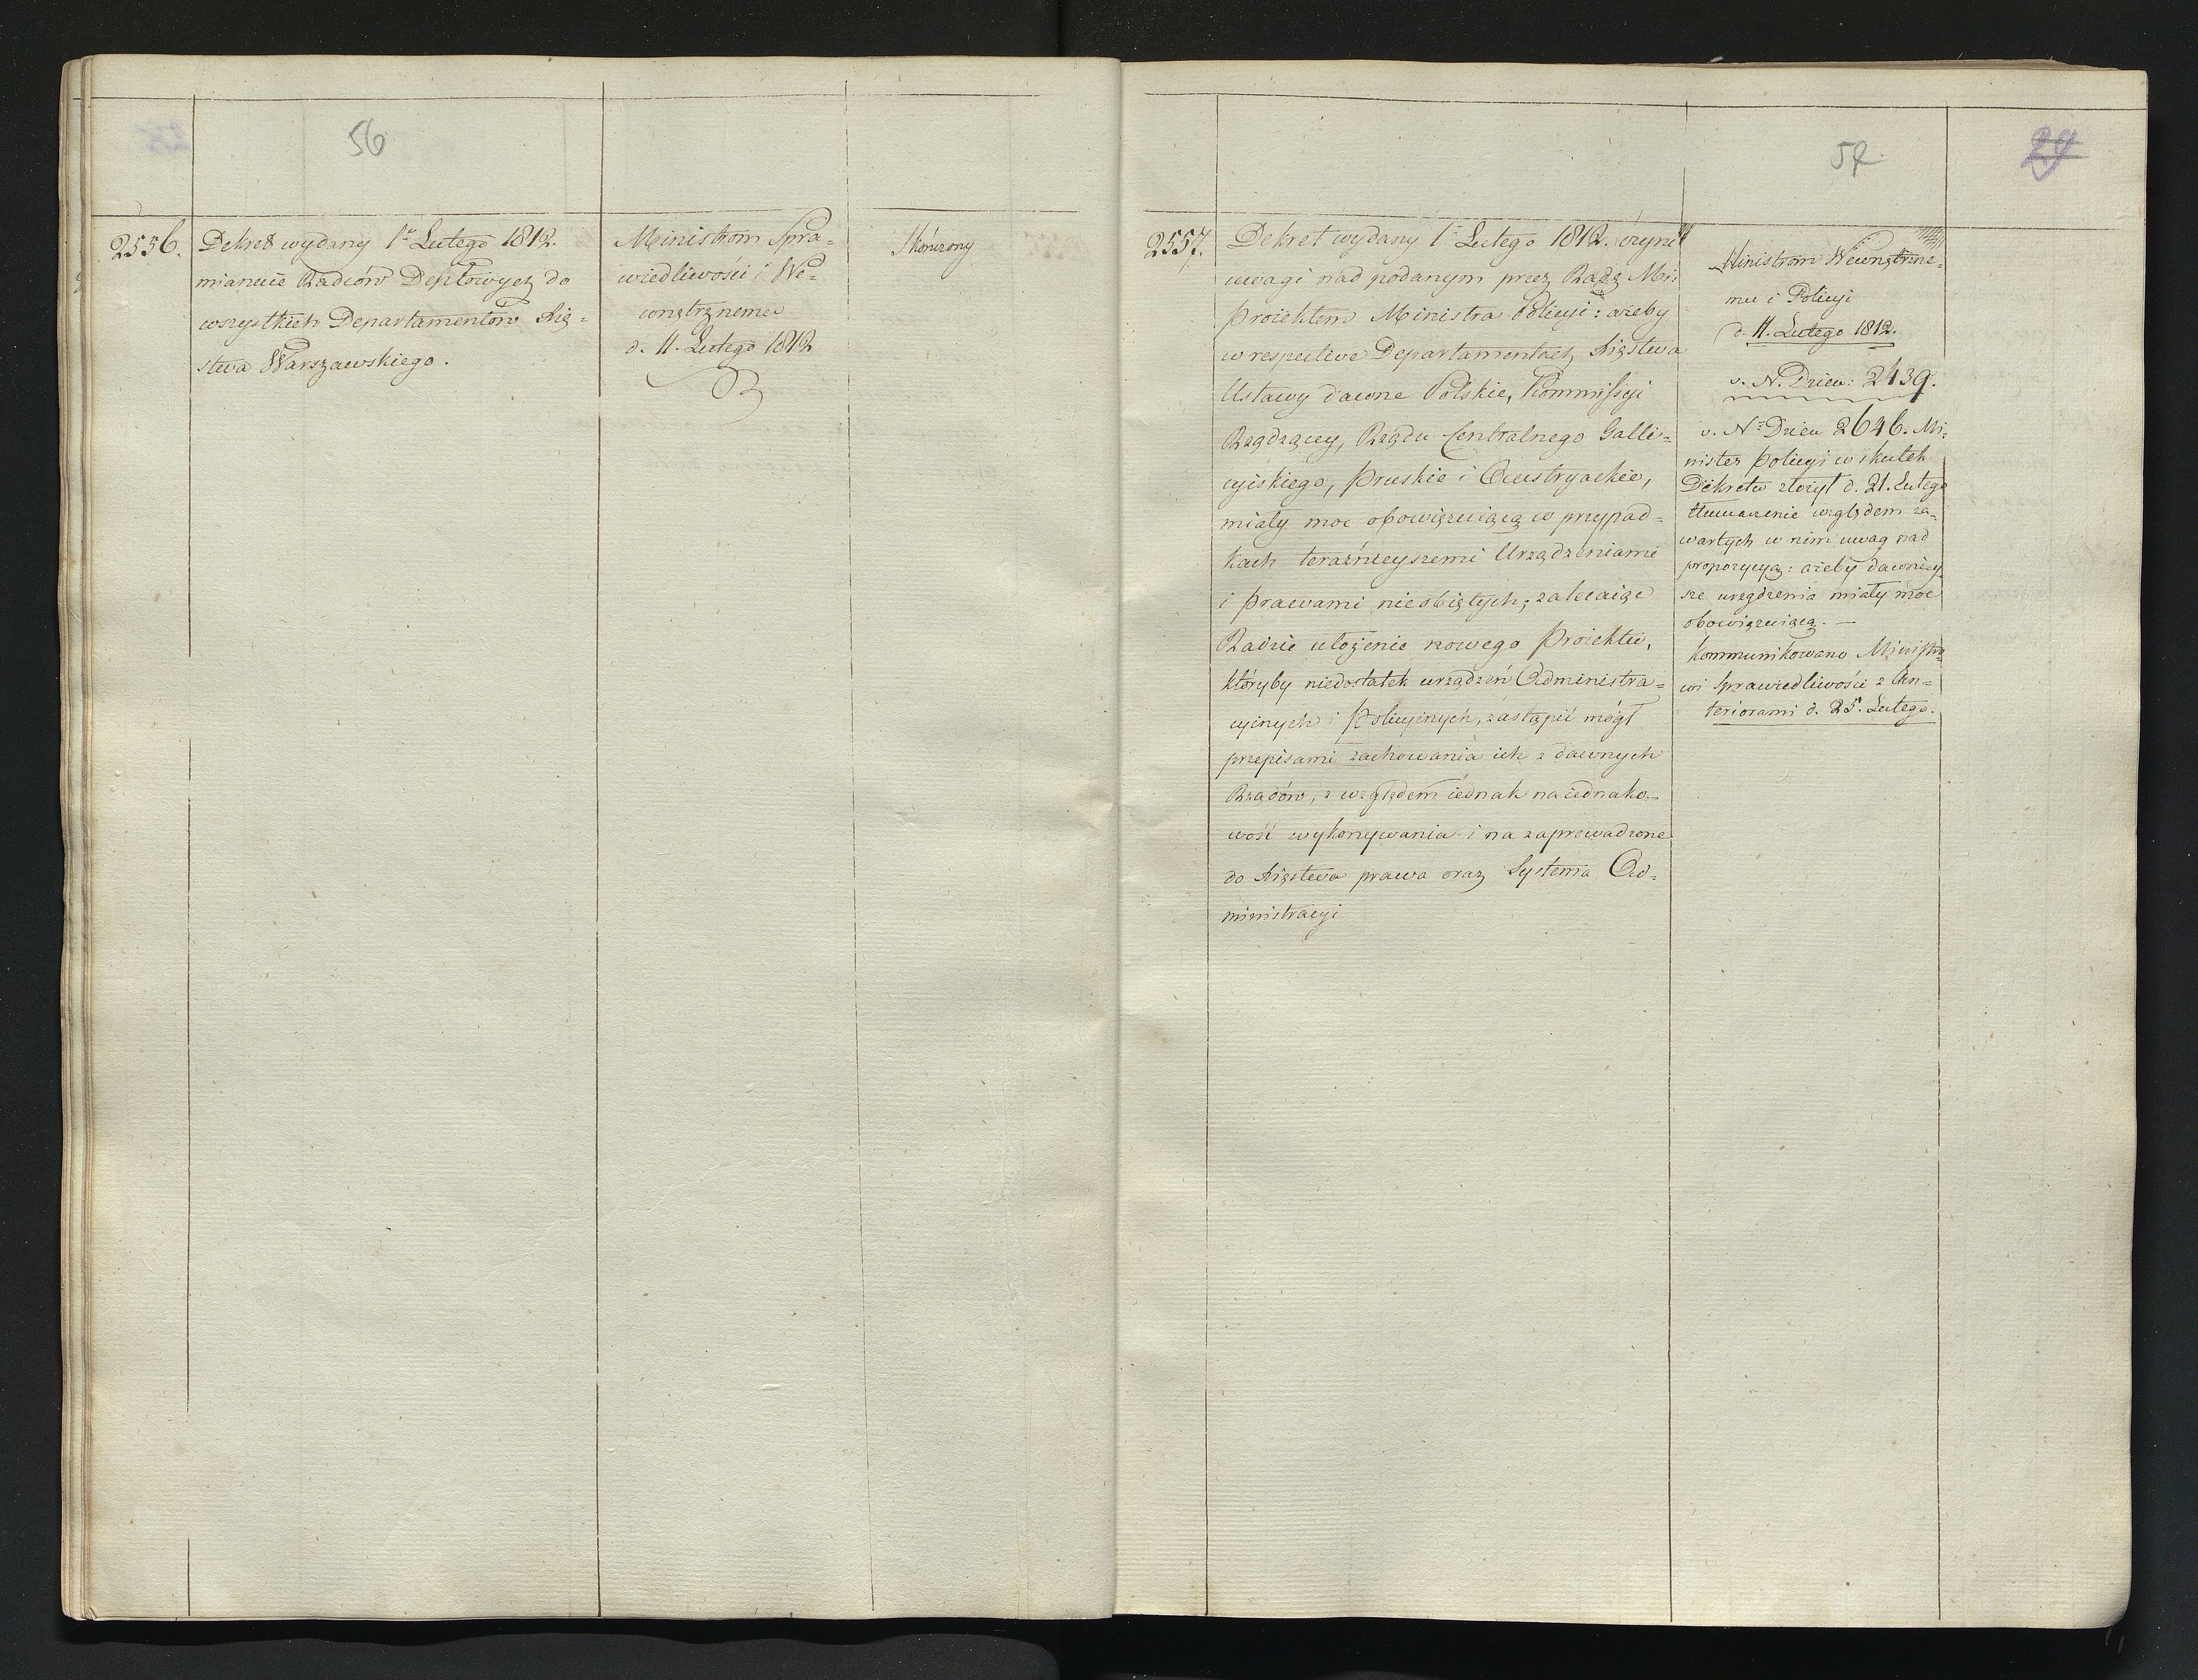 56
2556.
Dekret wydany 1º Lutego 1812.
mianuie Radców Deptowych do
wszystkich Departamentów Xię-
stwa Warszawskiego.
Ministrom Spra-
wiedliwości i We-
wnętrznemu
d. 11. Lutego 1812
Skończony
57.
29
2557.
Dekret wydany 1º Lutego 1812. czyni
uwagi nad podanym przez Radę Mi:
Proiektem Ministra Policyi: ażeby
w respective Departamentach Xięstwa
Ustawy dawne Polskie, Kommissyi
Rządzącey, Rządu Centralnego Galli-
cyiskiego, Pruskie i Austryackie,
miały moc obowięzuiącą w przypad-
kach teraźnieyszemi Urządzeniami
i prawami nieobiętych; zalecaiąc
Radzie ułożenie nowego Proiektu,
któryby niedostatek urządzeń Administra-
cyinych i Policyinych, zastąpić mógł
przepisami zachowania ich z dawnych
Rządów, z względem iednak na iednako-
wość wykonywania i na zaprowadzone
do Xięstwa prawa oraz Systema Ad-
ministracyi
Ministrom Wewnętrzne-
mu i Policyi
d. 11. Lutego 1812.
v. N. Dzien: 2439.
v. Nº Dzien 2646. Mi-
nister Policyi w skutek
Dekretu złożył d. 21. Lutego
tłumaczenie względem za-
wartych w nim uwag nad
propozycyą: ażeby dawniey-
sze urządzenia miały moc
obowięzuiącą. —
Kommunikowano Ministro-
wi Sprawiedliwości z An-
teriorami d. 25. Lutego.